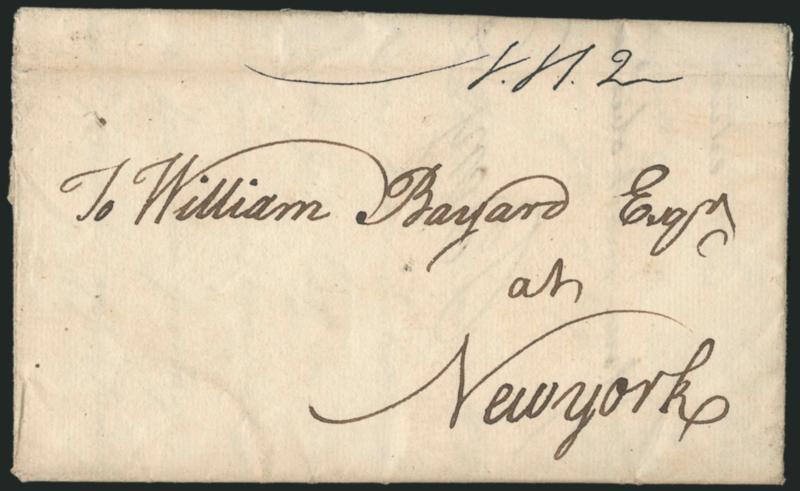 To William Bayard Esqr
at
Newyork